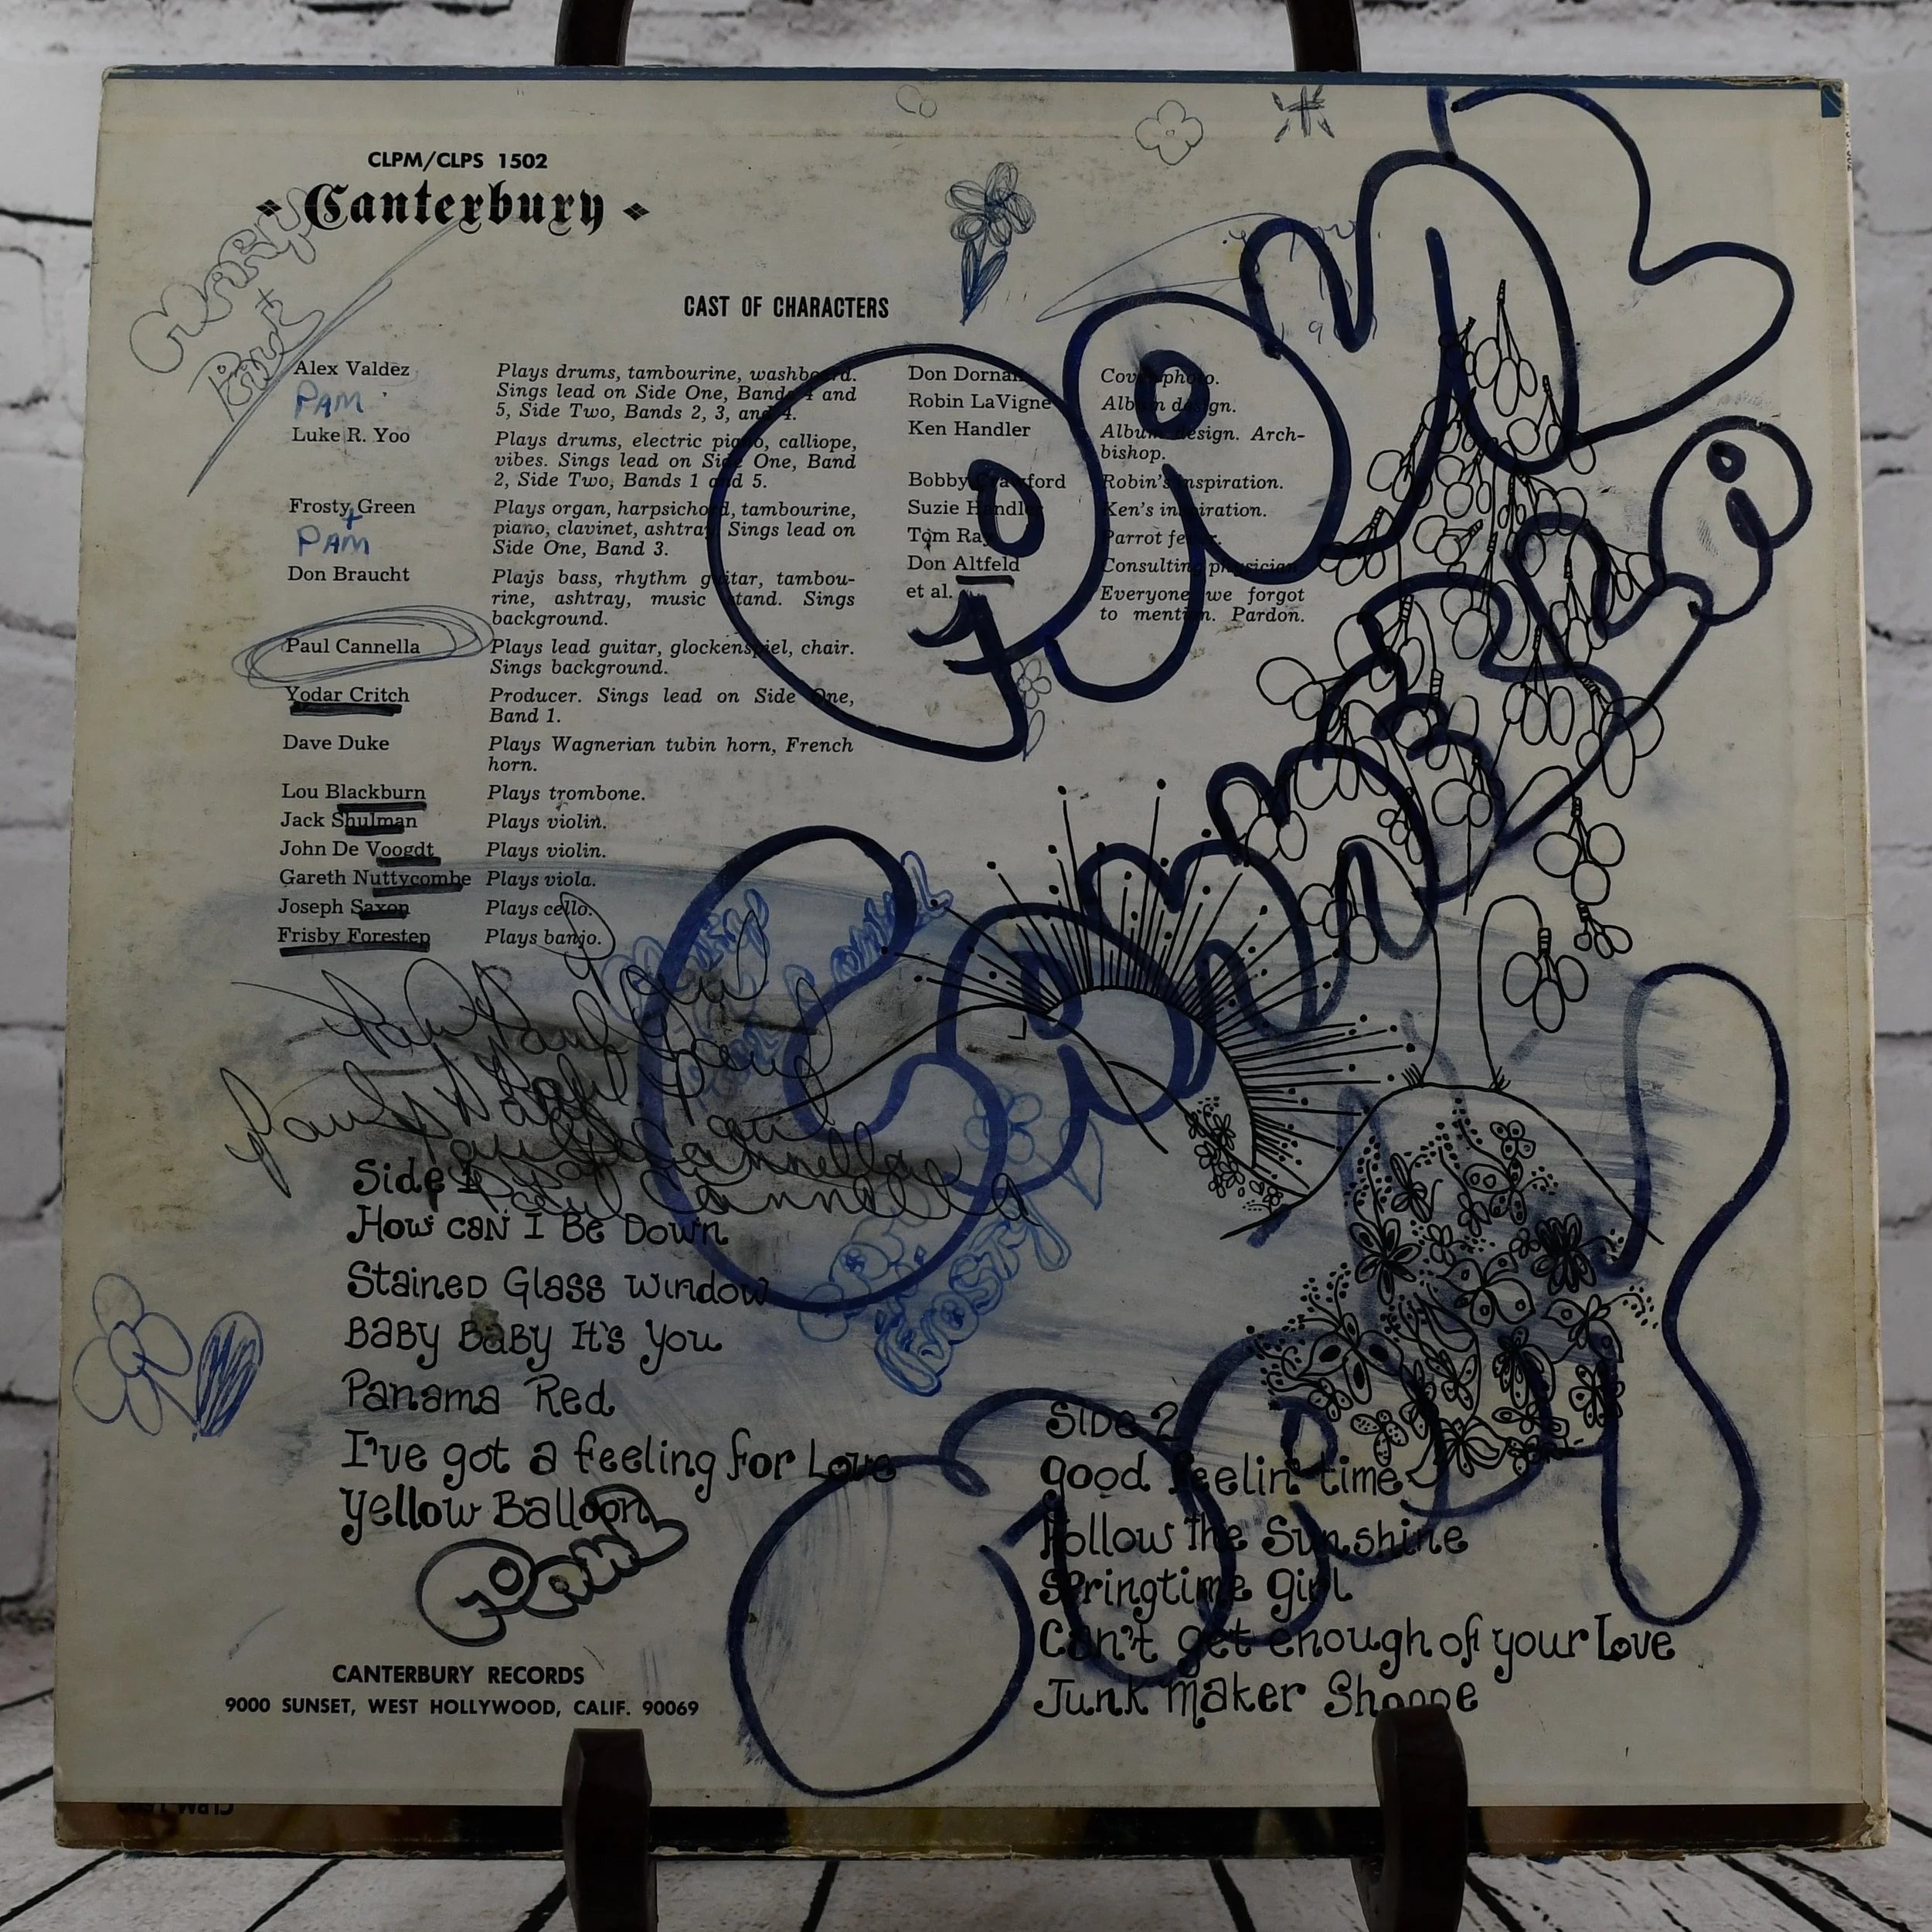 CLPM/CLPS 1502
Canterbury
CAST OF CHARACTERS
Alex Valdez
Plays drums, tambourine, washboard.
Sings lead on Side One, Bands 4 and
5, Side Two, Bands 2, 3, and 4.
PAM
Luke R. Yoo
Plays drums, electric piano, calliope,
vibes. Sings lead on Side One, Band
2, Side Two, Bands 1 and 5.
Frosty Green
Plays organ, harpsichord, tambourine,
piano, clavinet, ashtray. Sings lead on
Side One, Band 3.
+
PAM
Don Braucht
Plays bass, rhythm guitar, tambou-
rine, ashtray, music stand. Sings
background.
Paul Cannella
Plays lead guitar, glockenspiel, chair.
Sings background.
Yodar Critch
Producer. Sings lead on Side One,
Band 1.
Dave Duke
Plays Wagnerian tubin horn, French
horn.
Lou Blackburn Plays trombone.
Jack Shulman Plays violin.
John De Voogdt Plays violin.
Gareth Nuttycombe Plays viola.
Joseph Saxon Plays cello.
Frisby Forestep Plays banjo.
Don Dornan Cover photo.
Robin LaVigne Album design.
Ken Handler Album design. Arch-
bishop.
Bobby Crawford Robin's inspiration.
Suzie Handler Ken's inspiration.
Tom Ray Parrot fever.
Don Altfeld Consulting physician.
et al. Everyone we forgot
to mention. Pardon.
Paul
Paul Cannella
Paul Cannella
FROSTY
Side 1
How can I Be Down
Stained Glass Window
Baby Baby It's You
Panama Red
I've got a feeling for Love
Yellow Balloon
Paul
Side 2
good feelin' time
Follow The Sunshine
Springtime Girl
Can't get enough of your Love
Junk Maker Shoppe
CANTERBURY RECORDS
9000 SUNSET, WEST HOLLYWOOD, CALIF. 90069